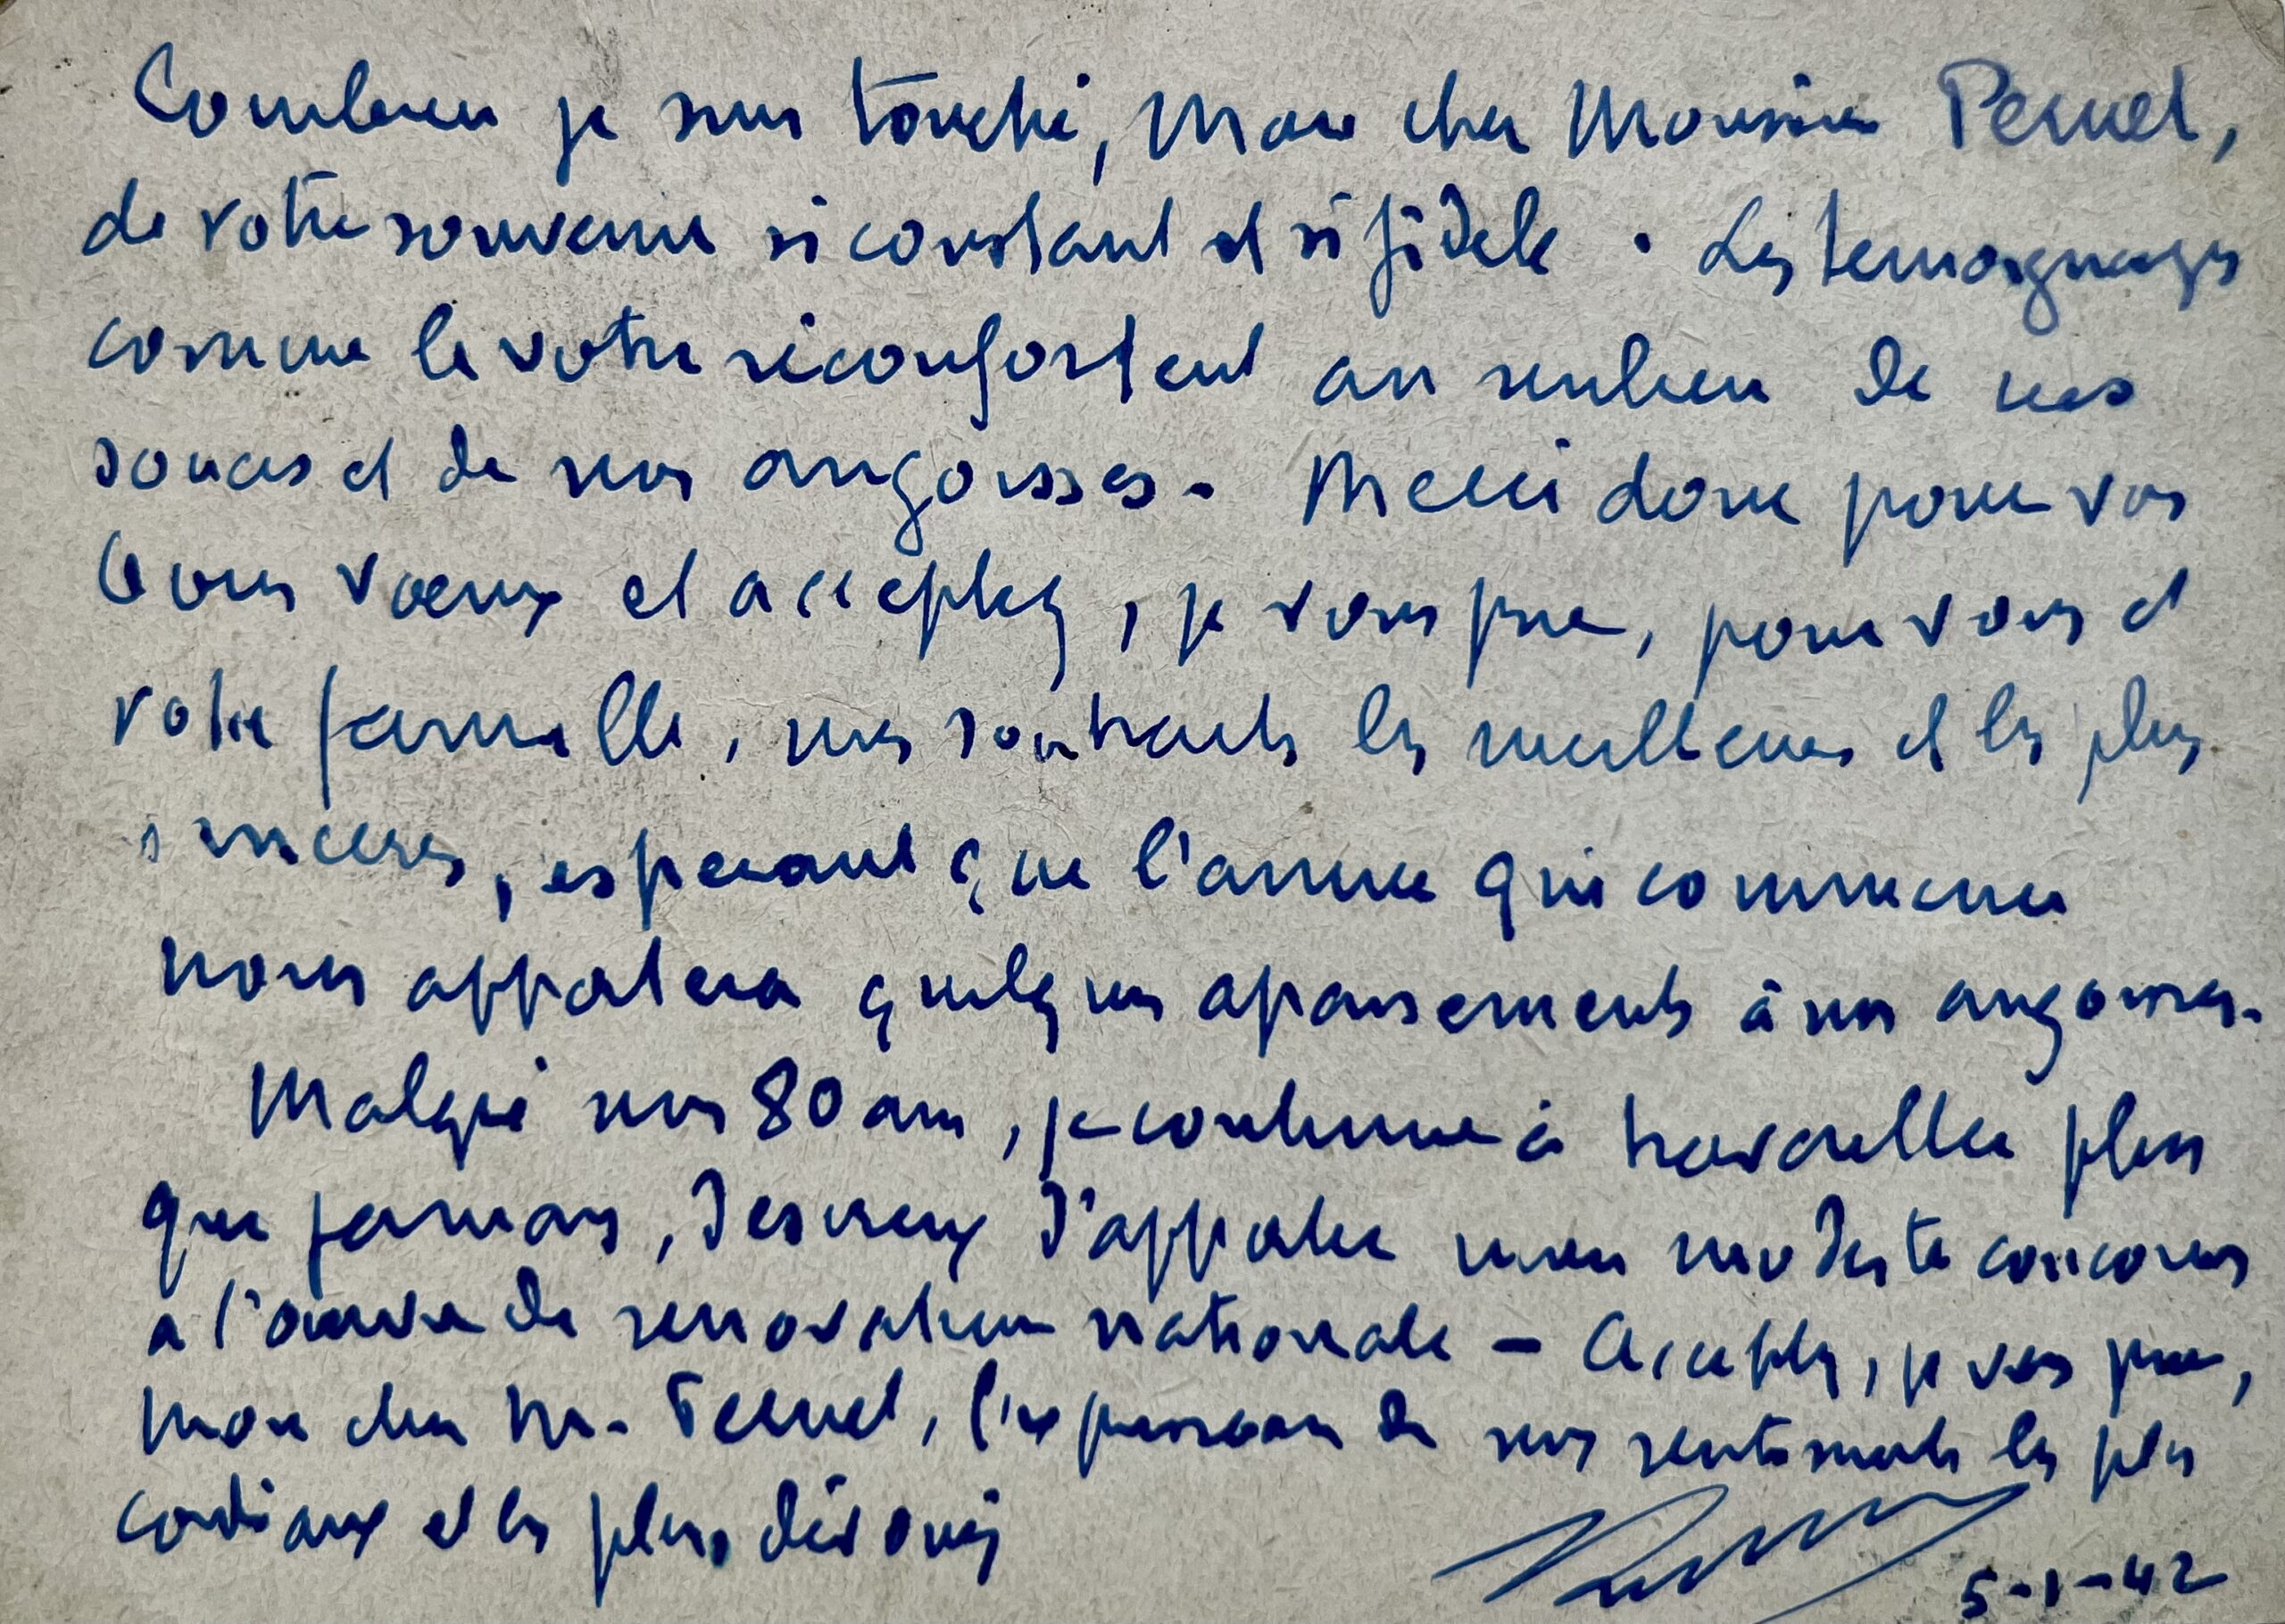 Combien je suis touché, mon cher Monsieur Pernet,
de votre souvenir si constant et si fidèle. Les temoignages
comme le votre réconfortent au milieu de nos
soucis et de nos angoisses. Merci donc pour vos
bons vœux et acceptez, je vous prie, pour vous et
votre famille, mes souhaits les meilleurs et les plus
sinceres, esperant que l'annee qui commence
nous apportera quelques apaisements à nos angoisses.
Malgré mes 80 ans, je continue à travailler plus
que jamais, desireux d'apporter mon modeste concours
a l'œuvre de renovation nationale - Acceptez, je vous prie,
mon cher M. Pernet, l'expression de mes sentiments les plus
cordiaux et les plus dévoués
5-1-42